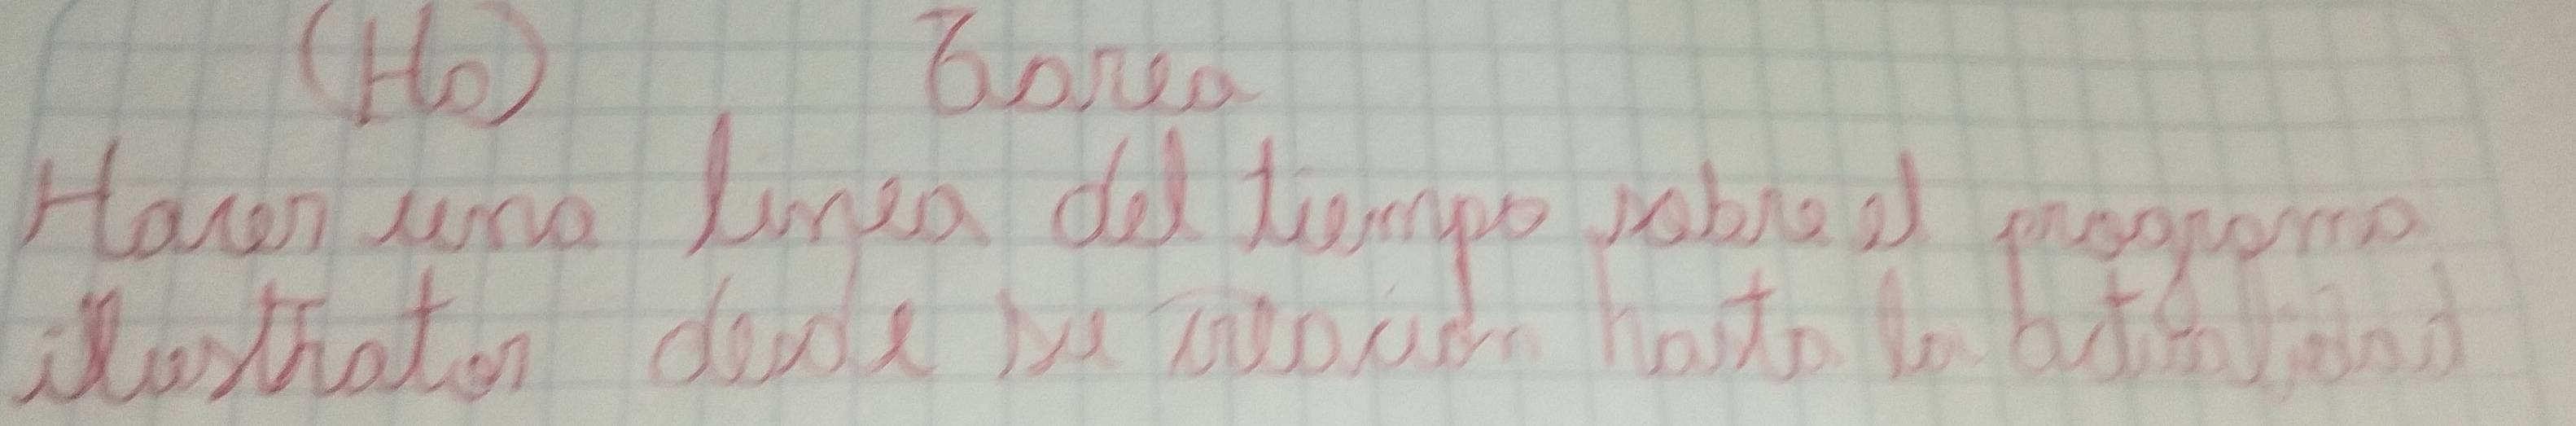 (Ho) Tarea
Hacer una linea del tiempo sobre el programa
illustrator desde su creación hasta la actualidad